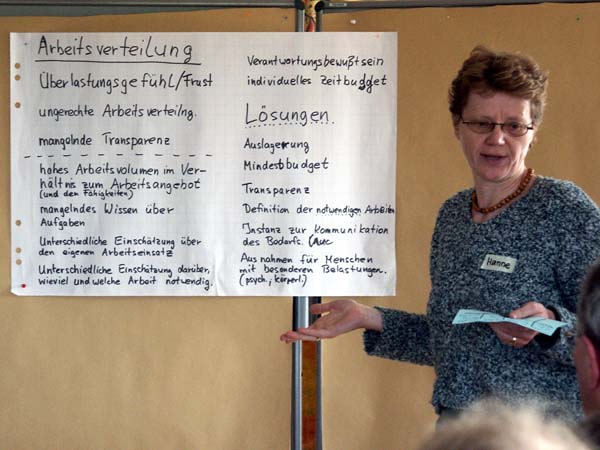 Arbeitsverteilung
Überlastungsgefühl/Frust
ungerechte Arbeitsverteilng.
mangelnde Transparenz
hohes Arbeitsvolumen im Ver-
hältnis zum Arbeitsangebot
(und den Fähigkeiten)
mangelndes Wissen über
Aufgaben
Unterschiedliche Einschätzung über
den eigenen Arbeitseinsatz
Unterschiedliche Einschätzung darüber,
wieviel und welche Arbeit notwendig.
Verantwortungsbewußtsein
individuelles Zeitbudget
Lösungen.
Auslagerung
Mindestbudget
Transparenz
Definition der notwendigen Arbeiten
Instanz zur Kommunikation
des Bedarfs.
Ausnahmen für Menschen
mit besonderen Belastungen.
(psych., körperl.)
Hanne